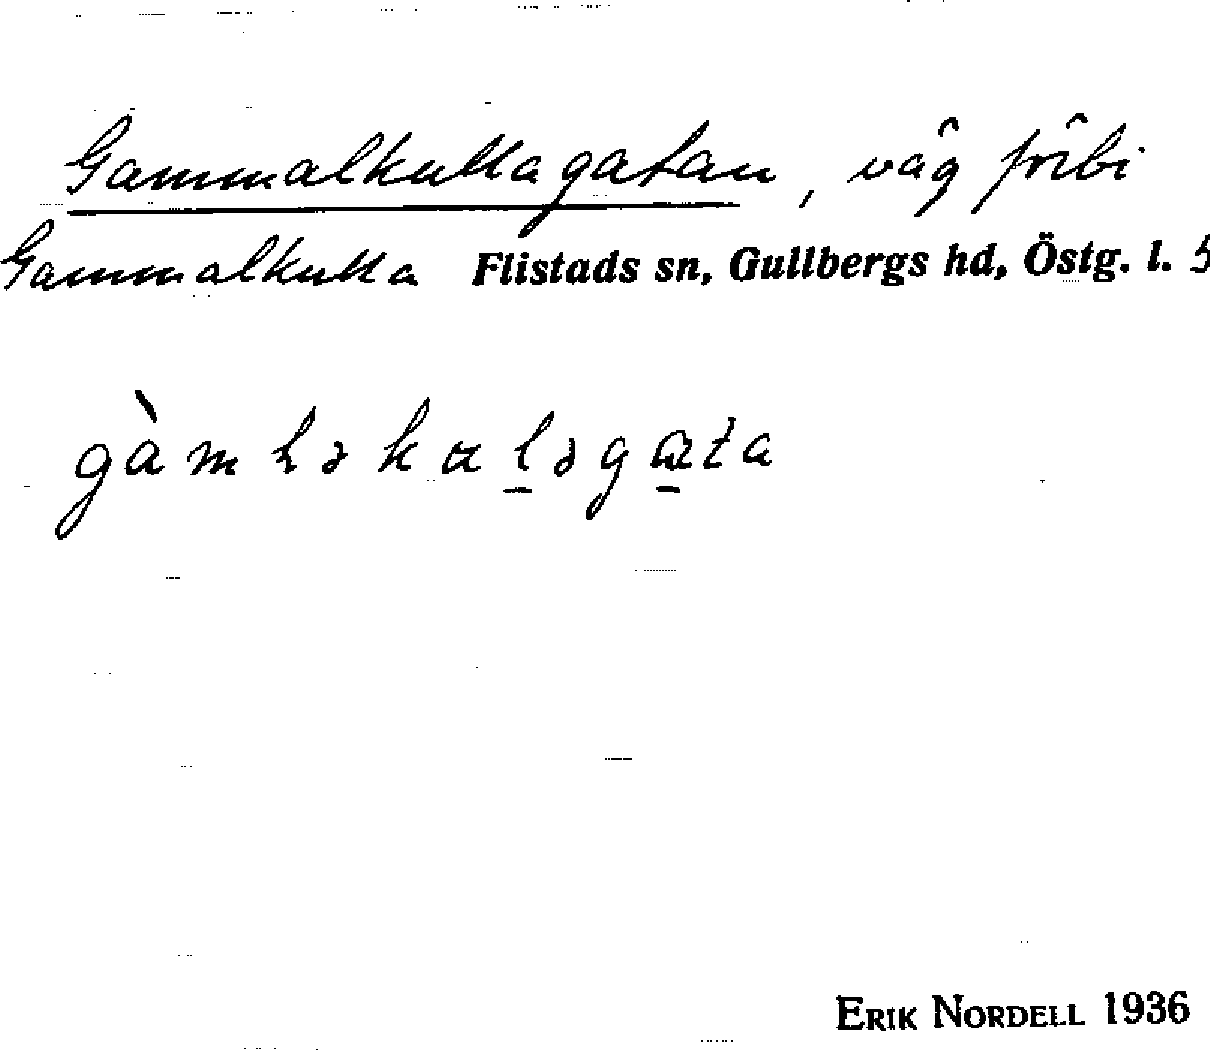 Gammalkullagatan, väg förbi
Gammalkulla Flistads sn, Gullbergs hd, Östg. l. 5
gàmləkuləgɑta
ERIK NORDELL 1936